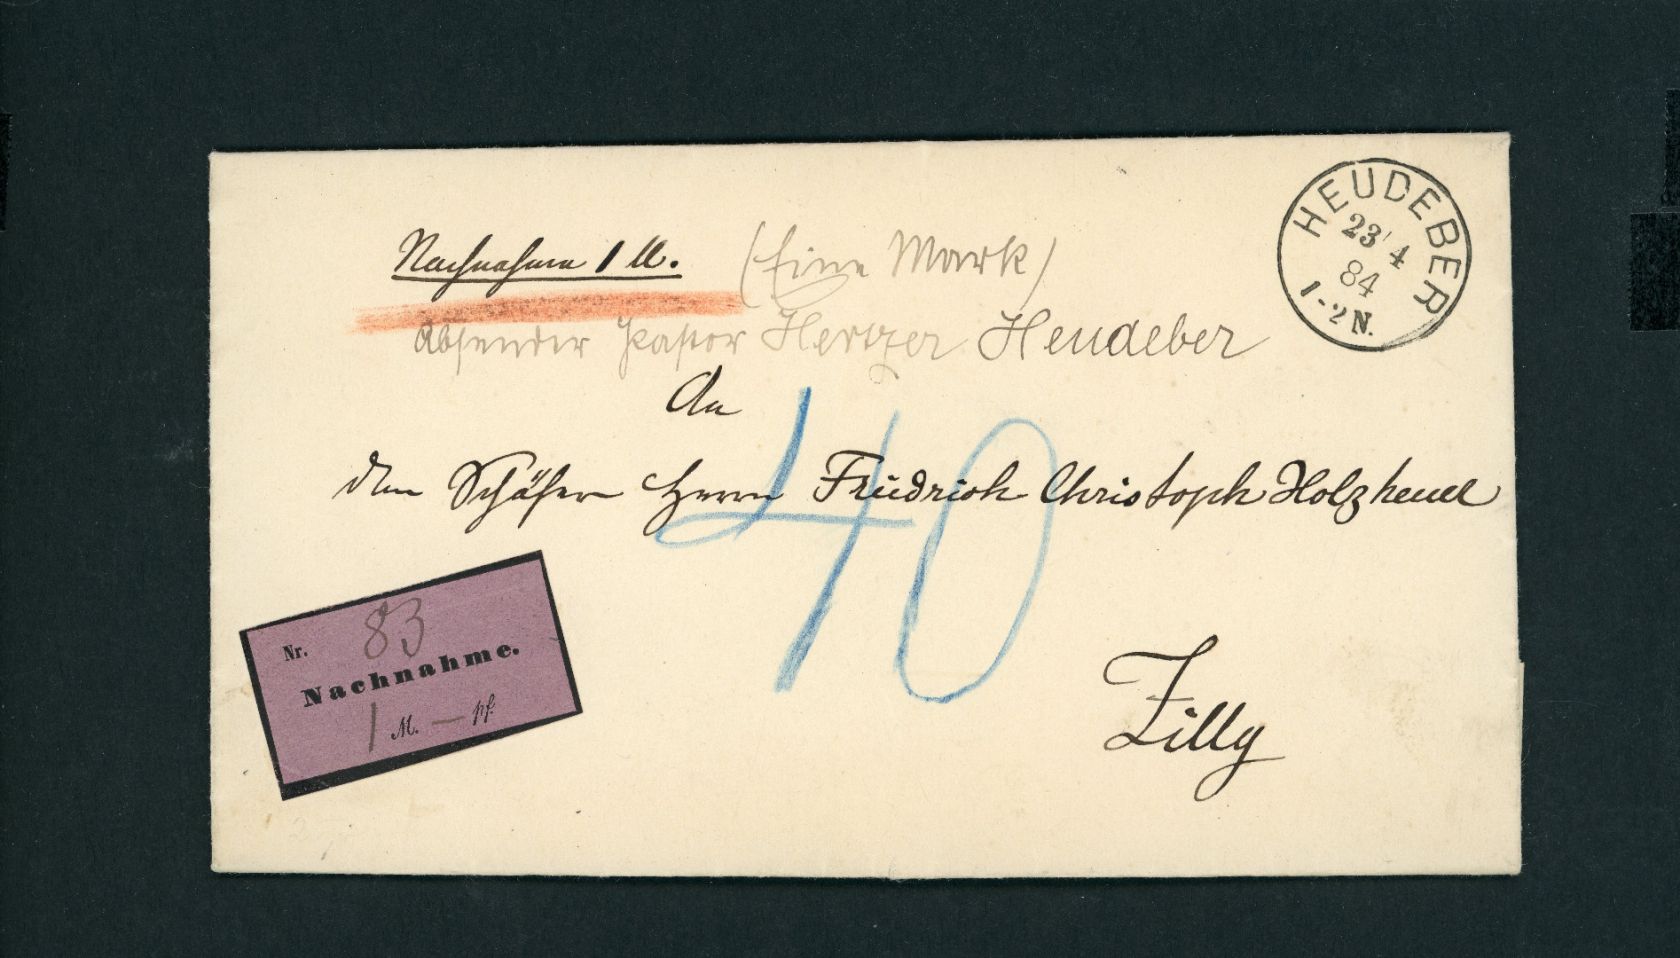 HEUDEBER
23/4
84
1-2 N.
Nachnahme 1 M. (Eine Mark)
Absender Pastor Hertzer Heudeber
An
den Schäfer Herrn Friedrich Christoph Holzheuer
40
Zilly
Nr. 83
Nachnahme.
1 M. — pf.